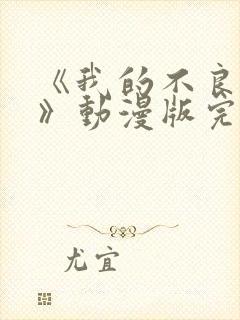 《我的不良
》動漫版完
尤宜